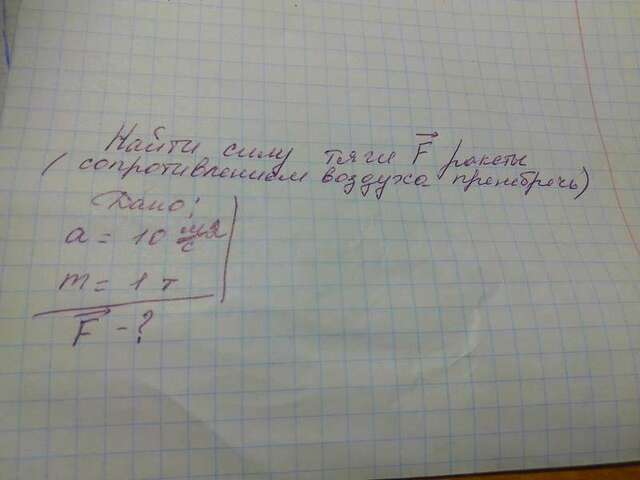 Найти силу тяги F ракеты
(сопротивлением воздуха пренебречь)
Дано:
a = 10 м/с²
m = 1 т
F - ?